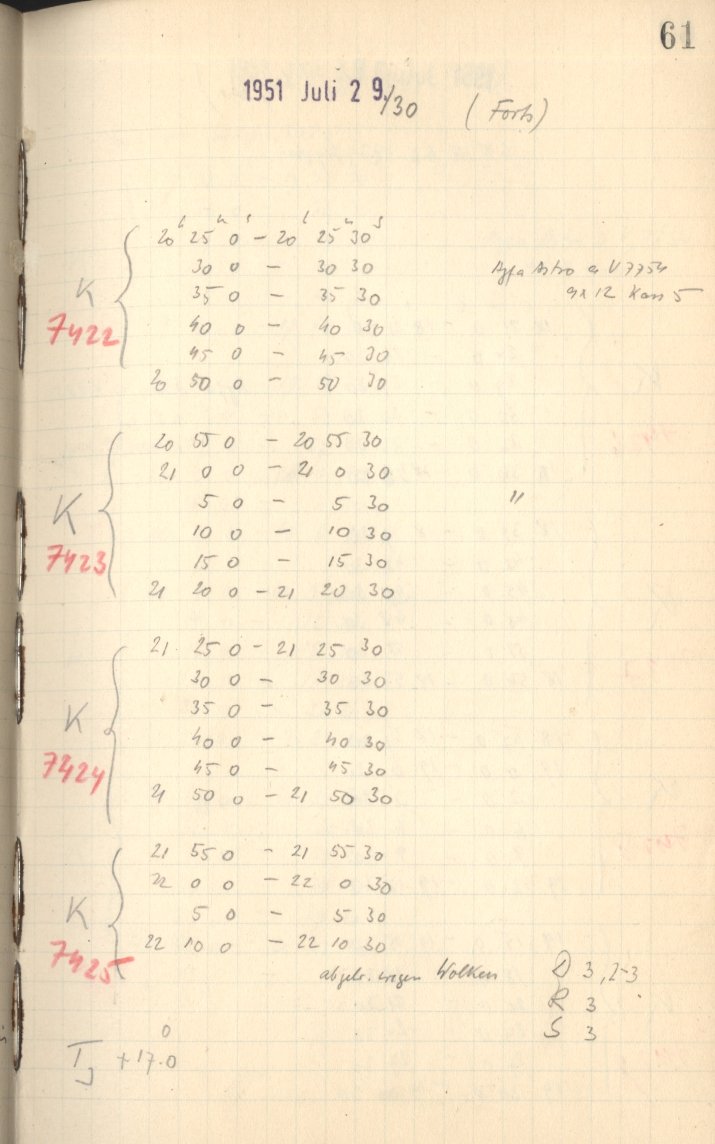 61
1951 Juli 29./30 (Forts)
h m s h m s
20 25 0 – 20 25 30
30 0 – 30 30 Agfa Astro V 7754
K 35 0 – 35 30 9x12 Kass 5
7422 40 0 – 40 30
45 0 – 45 30
20 50 0 – 50 30
20 55 0 – 20 55 30
21 0 0 – 21 0 30
K 5 0 – 5 30 "
10 0 – 10 30
7423 15 0 – 15 30
21 20 0 – 21 20 30
21 25 0 – 21 25 30
30 0 – 30 30
35 0 – 35 30
K 40 0 – 40 30
7424 45 0 – 45 30
21 50 0 – 21 50 30
21 55 0 – 21 55 30
22 0 0 – 22 0 30
K 5 0 – 5 30
22 10 0 – 22 10 30
7425 abgebr. wegen Wolken D 3, 2-3
R 3
S 3
T +17.0